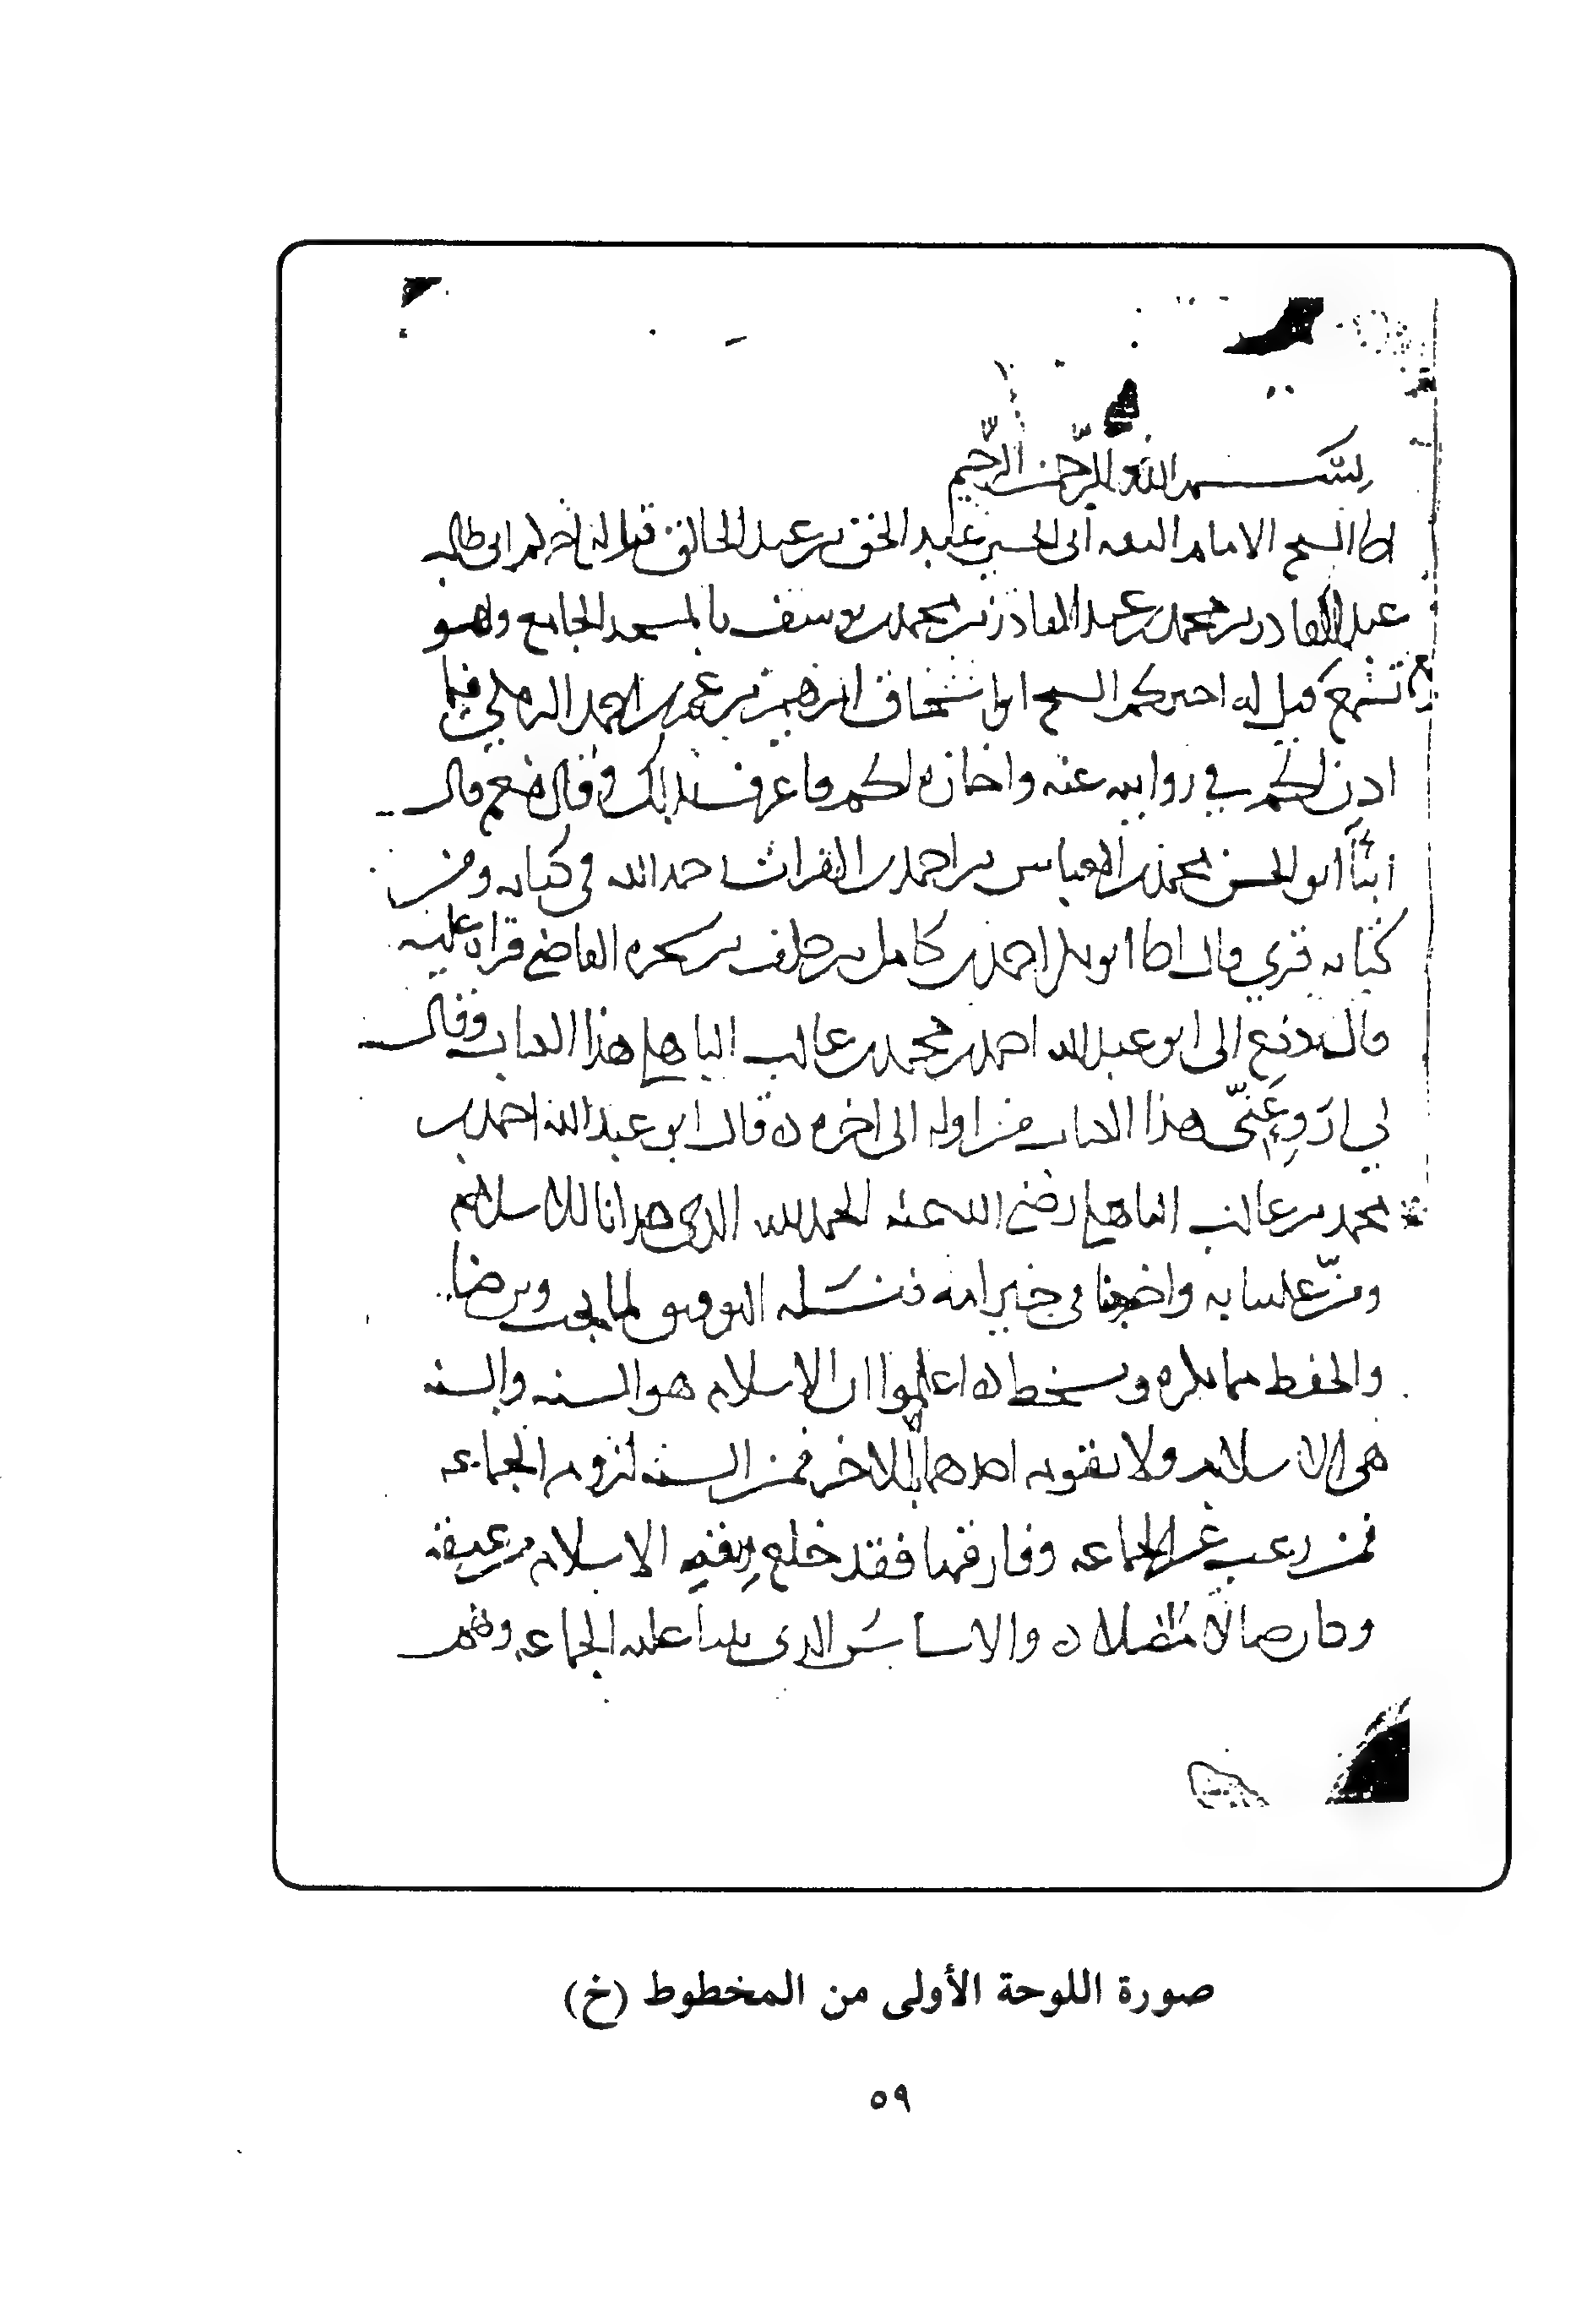 بسم الله الرحمن الرحيم
انا الشيخ الامام الثقه ابى الحسين عبد الحق بن عبد الخالق قيل له اخبركم ابى طالب
عبد القادر بن محمد بن عبد القادر بن محمد بن يوسف بالمسجد الجامع وهو
تسمع قيل له اخبركم الشيخ ابو اسحاق ابرهيم بن عمر بن احمد البرمكي فيما
اذن لكم في روايته عنه واجازه لكم فاعرف بذلك وقال نعم قال
انبأ ابو الحسن محمد بن العباس بن احمد بن الفرات رحمه الله في كتابه ومن
كتابه قري قال انا ابو بكر احمد بن كامل بن خلف بن شجره القاضي قراة عليه
قال دفع الى ابو عبد الله احمد بن محمد بن غالب الباهلي هذا الكتاب وقال
لي ارو عني هذا الكتاب من اوله الى اخره ٥ قال ابو عبد الله احمد بن
محمد بن غالب الباهلي رضي الله عنه الحمد لله الذي هدانا للاسلام
ومن علينا به واخرجنا في خير امه فنسله التوفيق لما يحب ويرضا
والحفظ مما يكره ويسخط ٥ اعلموا ان الاسلام هو السنه والسنه
هي الاسلام ولا يقوم احدهما الا بالاخر فمن السنه لزوم الجماعه
فمن رغب عن الجماعه وفارقها فقد خلع ربقة الاسلام من عنقه
وكان ضالا مضلا ٥ والاساس الذي بينا عليه الجماعه وهم
صورة اللوحة الأولى من المخطوط (خ)
٥٩